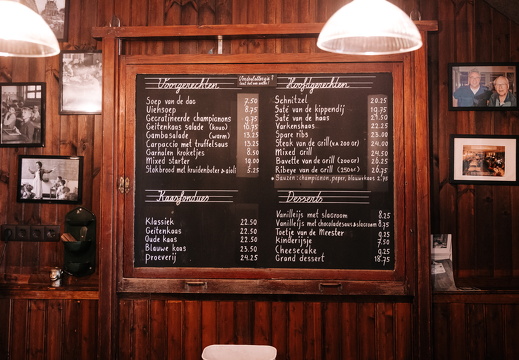 Voorgerechten
Soep van de dag 7.50
Uiensoep 8.75
Gegratineerde champignons 9.75
Geitenkaas salade (koud) 10.75
Gambasalade (warm) 13.25
Carpaccio met truffelsaus 13.25
Garnalen kroketjes 8.50
Mixed starter 19.00
Stokbrood met kruidenboter & aioli 6.25
Hoofdgerechten
Schnitzel 20.25
Saté van de kippendij 19.75
Saté van de haas 24.50
Varkenshaas 22.25
Spare ribs 23.00
Steak van de grill (va 200 gr)
Mixed grill 24.50
Bavette van de grill (200gr)
Ribeye van de grill (250gr) 26.75
Sauzen: champignon, peper, blauwe kaas 2.75
Kaasfondues
Klassiek 22.50
Geitenkaas 22.50
Oude kaas 22.50
Blauwe kaas 23.50
Proeverij 24.25
Desserts
Vanilleijs met slagroom 8.25
Vanilleijs met chocoladesaus & slagroom 8.75
Toetje van de Meester 9.25
Kinderijsje 7.50
Cheesecake 9.25
Grand dessert 18.75